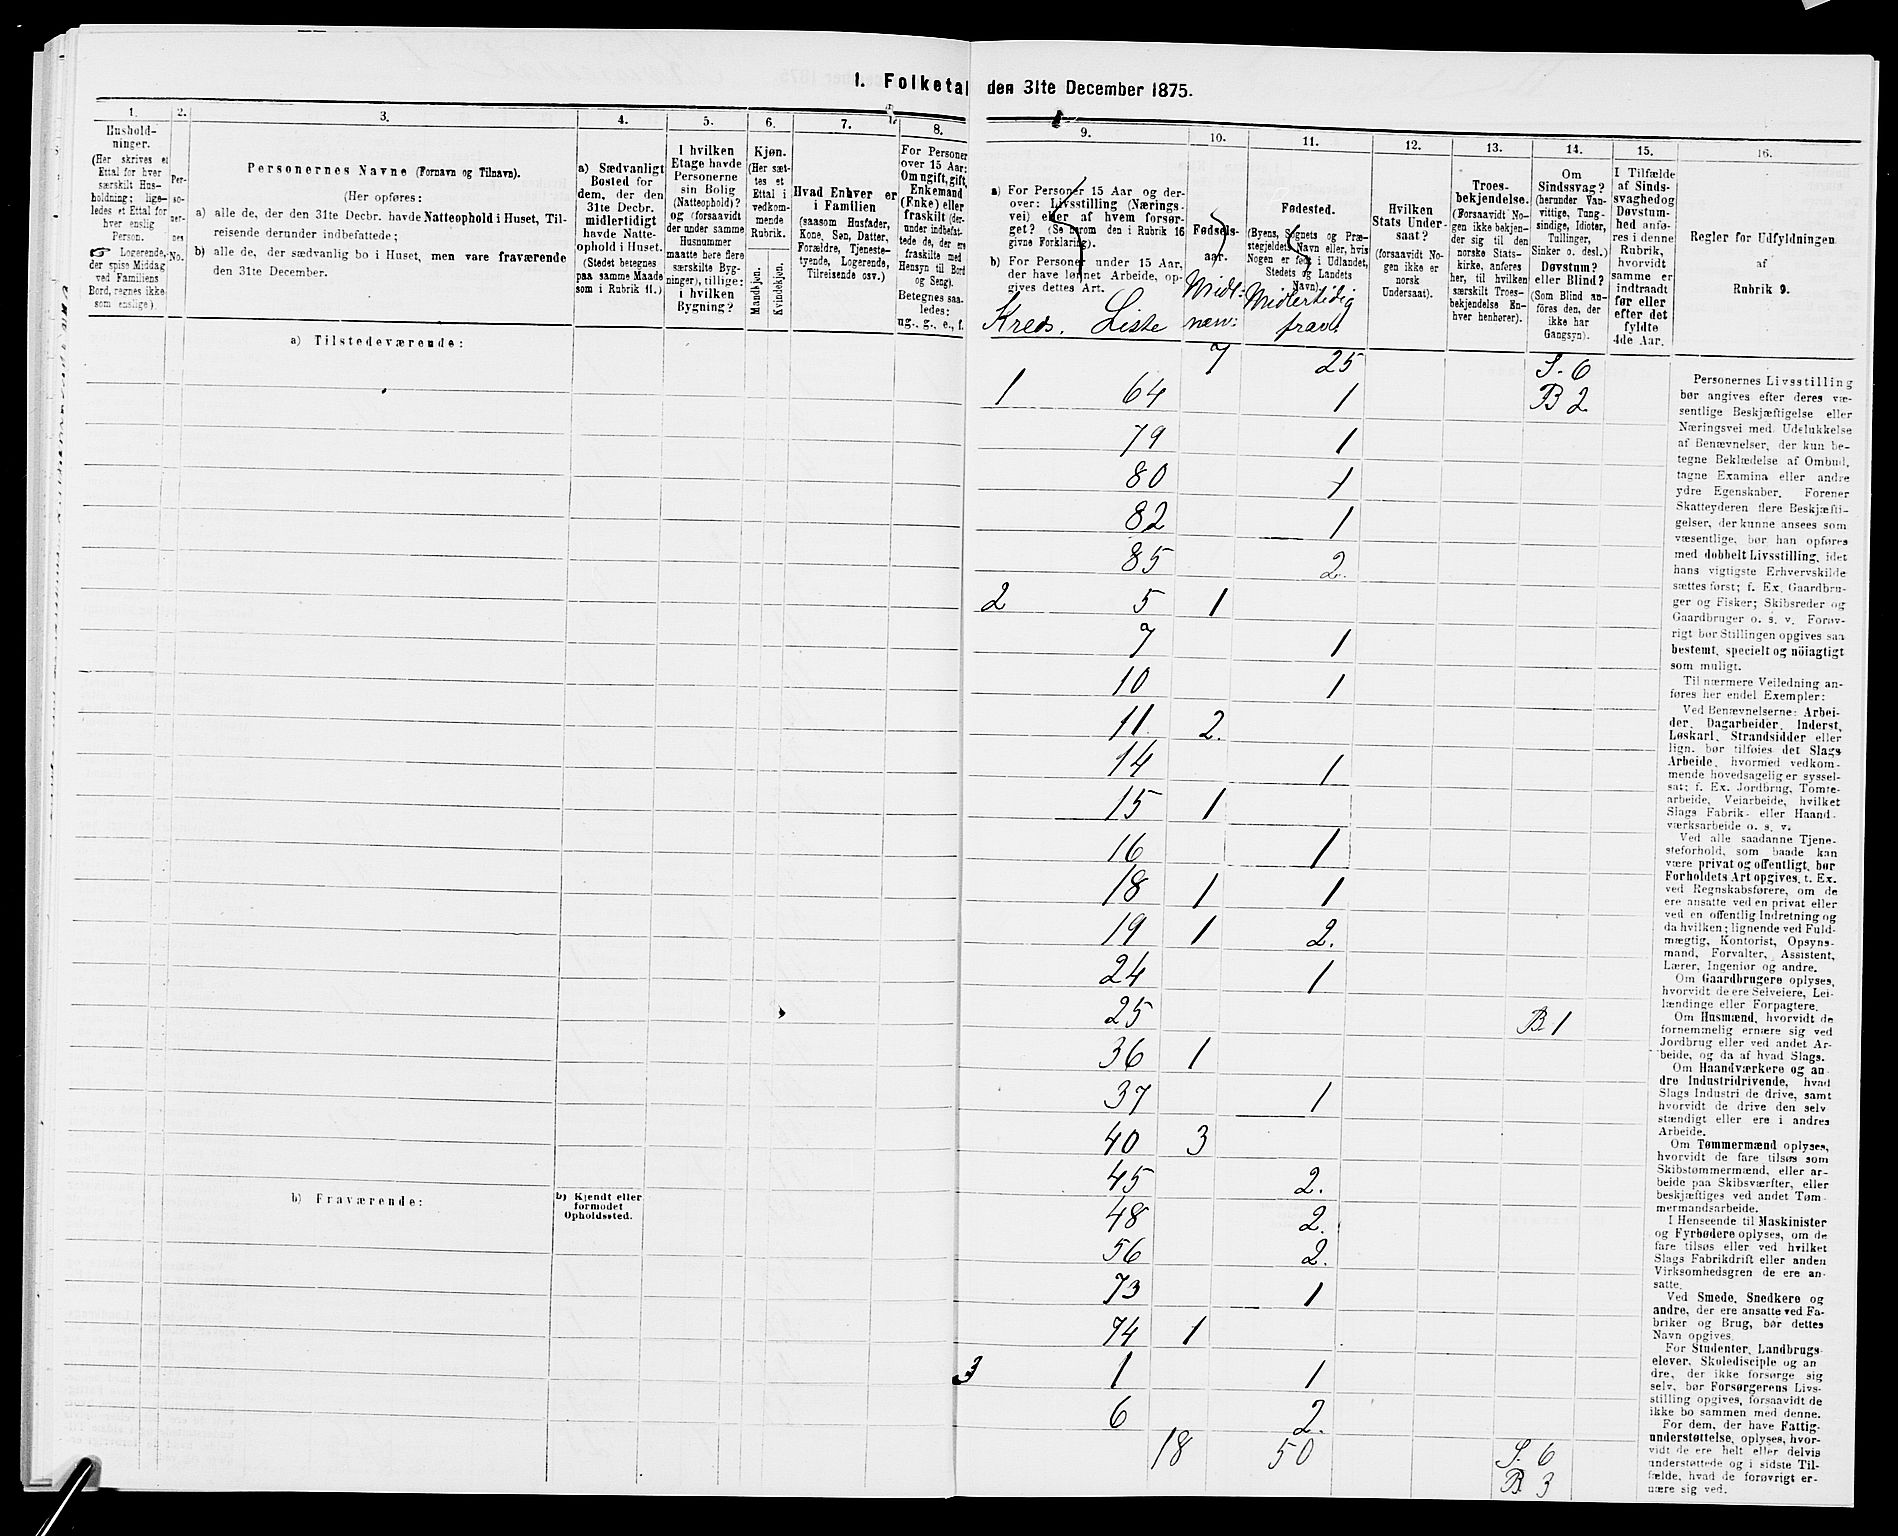 1. Folketal den 31te December 1875.
1.
2.
3.
4.
5.
6.
7.
8.
Hushold-
ninger.
(Her skrives et
Ettal for hver
særskilt Hus-
holdning; lige-
ledes et Ettal for
hver enslig
Person.
☞ Logerende,
der spise Middag
ved Familiens
Bord, regnes ikke
som enslige.)
Per-
so-
ner-
nes
No.
Personernes Navne (Fornavn og Tilnavn).
(Her opføres:
a) alle de, der den 31te Decbr. havde Natteophold i Huset, Til-
reisende derunder indbefattede;
b) alle de, der sædvanlig bo i Huset, men vare fraværende
den 31te December.
a) Sædvanligt
Bosted for
dem, der den
31te Decbr.
midlertidigt
havde Natte-
ophold i Huset.
(Stedet betegnes
paa samme Maade
som i Rubrik 11.)
I hvilken
Etage havde
Personerne
sin Bolig
(Natteophold)?
og (forsaavidt
der under samme
Husnummer
maatte høre flere
særskilte Byg-
ninger), tillige:
i hvilken
Bygning?
Kjøn.
(Her sæt-
tes et
Ettal i
vedkom-
mende
Rubrik.
Mandkjøn.
Kvindekjøn.
Hvad Enhver er
i Familien
(saasom Husfader,
Kone, Søn, Datter,
Forældre, Tjeneste-
tyende, Logerende,
Tilreisende osv.)
For Personer
over 15 Aar:
Om ugift, gift,
Enkemand
(Enke) eller
fraskilt (der-
under indbefat-
tede de, der ere
fraskilte med
Hensyn til Bord
og Seng).
Betegnes saa-
ledes:
ug., g., e., f.
a) Tilstedeværende:
b) Fraværende:
b) Kjendt eller
formodet
Opholdssted.
9.
10.
11.
12.
13.
14.
15.
16.
a) For Personer 15 Aar og der-
over: Livsstilling (Nærings-
vei) eller af hvem forsør-
get? (Se herom den i Rubrik 16
givne Forklaring).
b) For Personer under 15 Aar,
der have lønnet Arbeide, op-
gives dettes Art.
Fødsels-
aar.
Fødested.
(Byens, Sognets og Præ-
stegjeldets Navn eller, hvis
Nogen er født i Udlandet,
Stedets og Landets
Navn).
Hvilken
Stats Under-
saat?
(forsaavidt No-
gen ikke er
norsk
Undersaat).
Troes-
bekjendelse.
(Forsaavidt No-
gen ikke bekjen-
der sig til den
norske Stats-
kirke, anføres
her, til hvilken
særskilt Troes-
bekjendelse En-
hver henhører).
Om
Sindssvag?
(herunder Van-
vittige, Tung-
sindige, Idioter,
Tullinger,
Sinker o. desl.)
Døvstum?
eller Blind?
(Som Blind an-
føres den, der
ikke har
Gangsyn).
I Tilfælde
af Sinds-
svaghed og
Døvstum-
hed anfø-
res i denne
Rubrik,
hvorvidt
samme er
indtraadt
før eller
efter det
fyldte
4de Aar.
Regler for Udfyldningen
af
Rubrik 9.
Kreds. Liste Midl: næv: Midlertidig frav:
7 25 S. 6
1 64 1 B 2
79 1
80 1
82 1
85 2.
2 5 1
7 1
10 1
11. 2.
14 1
15 1
16 1
18 1 1
19 1 2.
24 1
25 B 1
36 1
37 1
40 3
45 2.
48 2.
56 2.
73 1
74 1
3 1 1
6 2.
18 50 S. 6
B. 3
Personernes Livsstilling
bør angives efter deres væ-
sentlige Beskjæftigelse eller
Næringsvei med Udelukkelse
af Benævnelser, der kun be-
tegne Beklædelse af Ombud,
tagne Examina eller andre
ydre Egenskaber. Forener
Skatteyderen flere Beskjæfti-
gelser, der kunne ansees som
væsentlige, bør han opføres
med dobbelt Livsstilling, idet
hans vigtigste Erhvervskilde
sættes først; f. Ex. Gaardbru-
ger og Fisker; Skibsreder og
Gaardbruger o. s. v. Forøv-
rigt bør Stillingen opgives saa
bestemt, specielt og nöiagtigt
som muligt.
Til nærmere Veiledning an-
føres her endel Exempler:
Ved Benævnelserne: Arbei-
der, Dagarbeider, Inderst,
Løskarl, Strandsidder eller
lign. bør tilføies det Slags
Arbeide, hvormed vedkom-
mende hovedsagelig er syssel-
sat; f. Ex. Jordbrug, Tomte-
arbeide, Veiarbeide, hvilket
Slags Fabrik- eller Haand-
værksarbeide o. s. v.
Ved alle saadanne Tjene-
steforhold, som baade kan
være privat og offentligt, bør
Forholdets Art opgives, t. Ex.
ved Regnskabsførere, om de
ere ansatte ved en privat eller
ved en offentlig Indretning og
da hvilken; lignende ved Fuld-
mægtig, Kontorist, Opsyns-
mand, Forvalter, Assistent,
Lærer, Ingeniør og andre.
Om Gaardbrugere oplyses,
hvorvidt de ere Selveiere, Lei-
lændinge eller Forpagtere.
Om Husmænd, hvorvidt de
fornemmelig ernære sig ved
Jordbrug eller ved andet Ar-
beide, og da af hvad Slags.
Om Haandværkere og an-
dre Industridrivende, hvad
Slags Industri de drive, samt
hvorvidt de drive den selv-
stændigt eller ere i andres
Arbeide.
Om Tømmermænd oplyses,
hvorvidt de fare tilsøs som
Skibstømmermænd, eller ar-
beide paa Skibsværfter, eller
beskjæftiges ved andet Tøm-
mermandsarbeide.
I Henseende til Maskinister
og Fyrbødere oplyses, om de
fare tilsøs eller ved hvilket
Slags Fabrikdrift eller anden
Virksomhedsgren de ere an-
satte.
Ved Smede, Snedkere og
andre, der ere ansatte ved Fa-
briker og Brug, bør dettes
Navn opgives.
For Studenter, Landbrugs-
elever, Skoledisciple og an-
dre, der ikke forsørge sig
selv, bør Forsørgerens Livs-
stilling opgives, forsaavidt de
ikke bo sammen med denne.
For dem, der have Fattig-
understøttelse, oplyses, hvor-
vidt de ere helt eller delvis
understøttede og i sidste Til-
fælde, hvad de forøvrigt er-
nære sig ved.